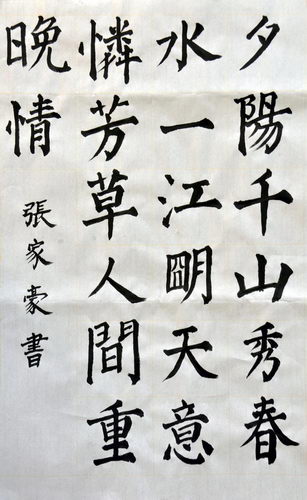 夕陽千山秀春
水一江朙天意
憐芳草人間重
晚情
張家豪書